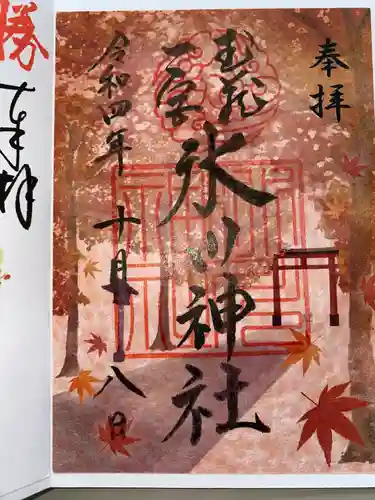 奉拝
武蔵
一宮
氷川神社
令和四年十月十八日
勝
奉拝